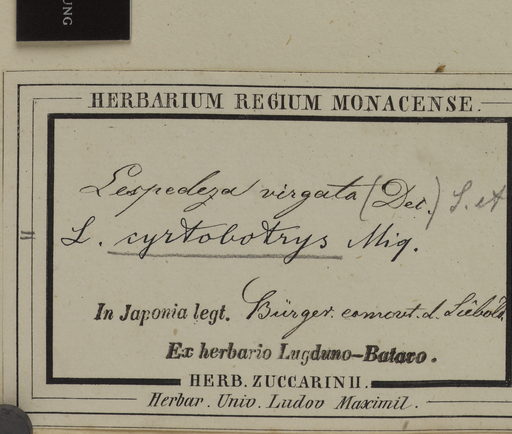 UNG
HERBARIUM REGIUM MONACENSE.
Lespedeza virgata (Dec.) S. et
= L. cyrtobotrys Miq.
In Japonia legt. Bürger. comout. d. Siebold.
Ex herbario Lugduno-Batavo.
HERB. ZUCCARINII.
Herbar. Univ. Ludov Maximil.